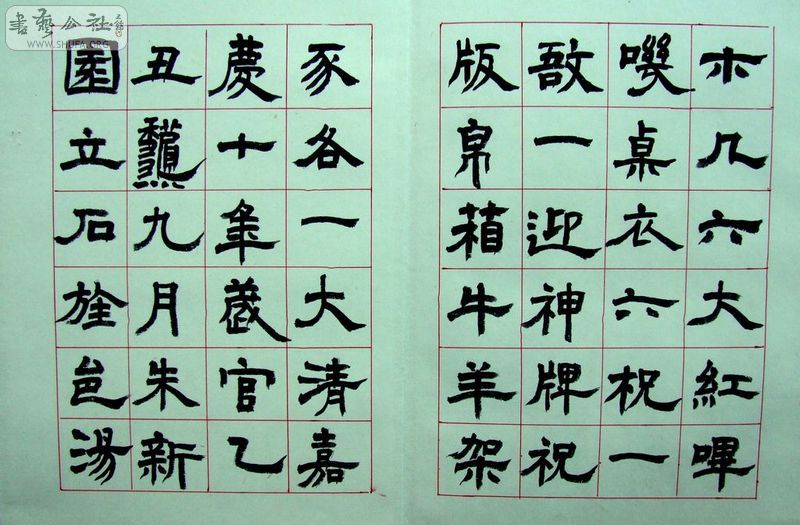 木几六大紅嗶
嘰桌衣六柷一
敔一迎神牌祝
版帛箱牛羊架
豕各一大清嘉
慶十年歲官乙
丑龝九月朱新
園立石旌邑湯
書藝公社
WWW.SHUFA.ORG